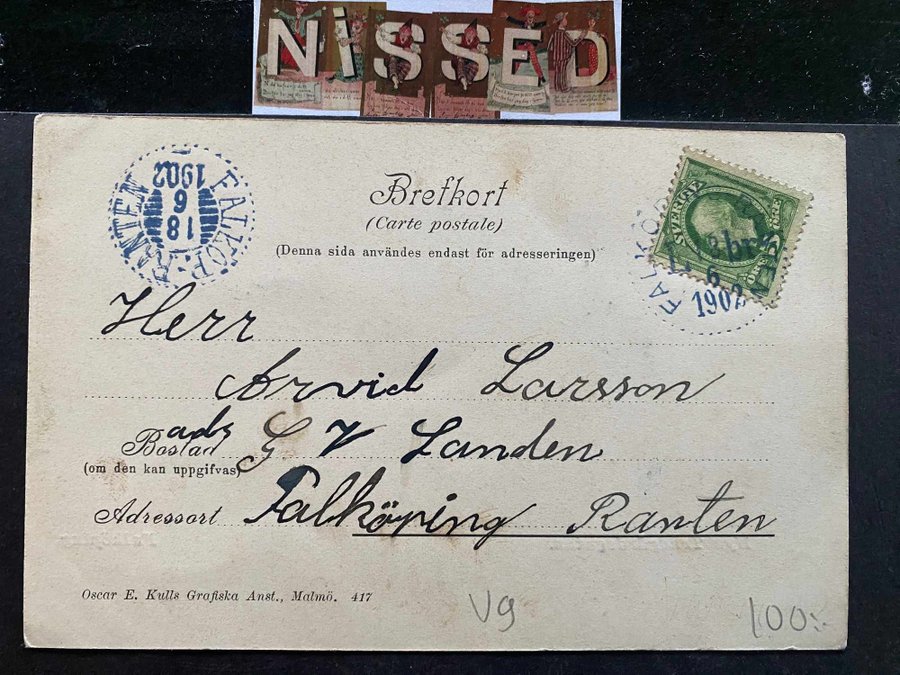 NISSED
Brefkort
(Carte postale)
(Denna sida användes endast för adresseringen)
FALKÖP.-RANTEN
18
6
1902
SVERIGE
FEM
ÖRE
FALKÖP
6
1902
Herr
Arvid Larsson
Bostad adr G V Landen
(om den kan uppgifvas)
Adressort Falköping Ranten
Oscar E. Kulls Grafiska Anst., Malmö. 417
Vg
100:-